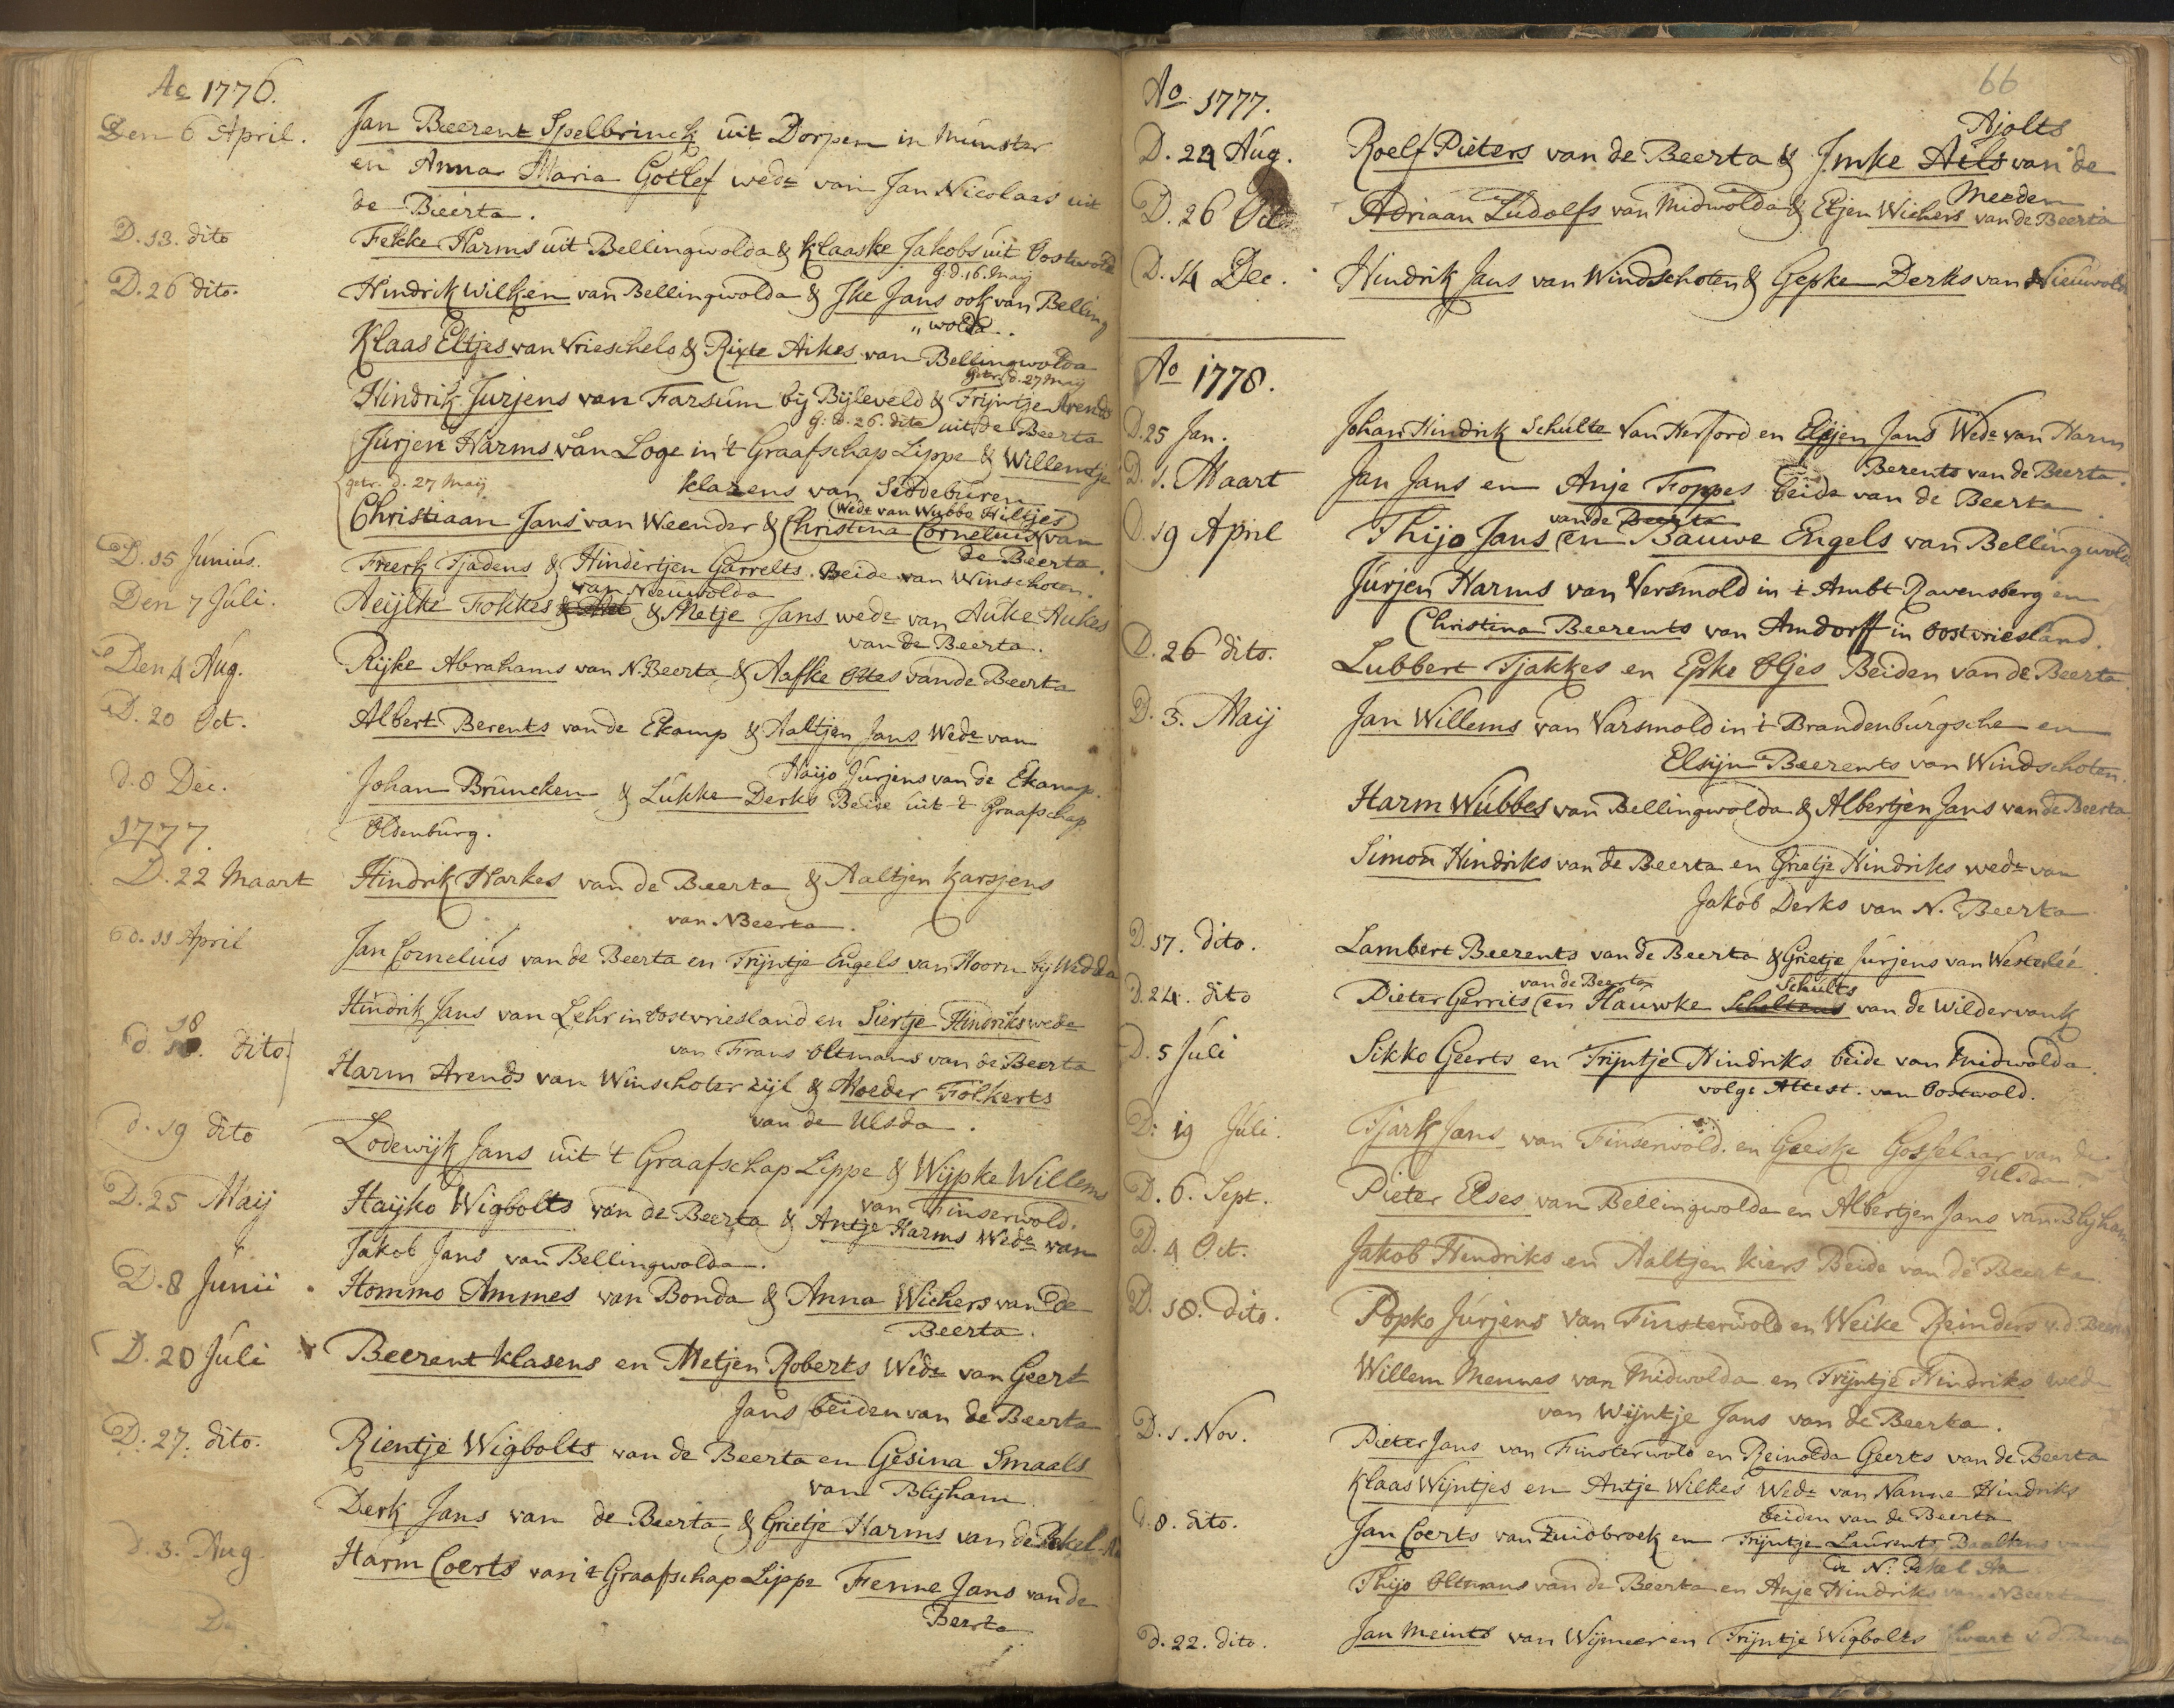 Ao 1776.
Den 6 April. Jan Beerent Spelbrinck uit Dorpen in Munster
en Anna Maria Gotlef wede van Jan Nicolaas uit
de Bierta.
D. 13. dito Fekke Harms uit Bellingwolda & Klaaske Jakobs uit Oostwold
g: d. 16. Maij
D. 26 dito. Hindrik Wilken van Bellingwolda & Ike Jans ook van Belling
" wolda.
Klaas Eltjes van Vrieschelo & Rixte Aikes van Bellingwolda
getr. d. 27 Maij
Hindrik Jurjens van Farsum bij Bijleveld & Trijntje Arends
g: d. 26. dito uit de Beerta
Jurjen Harms van Loge in 't Graafschap Lippe & Willemtje
getr. d. 27 Maij Klazens van Siddeburen
(Wede van Wubbo Hiltjes)
Christiaan Jans van Weender & Christina Cornelius van
de Beerta.
D. 15 Junius. Freerk Tjadens & Hindertjen Garrelts. Beide van Winschoten.
van Nieuwolda
Den 7 Juli. Heijlke Fokkes & Metje Jans wede van Auke Aukes
van de Beerta.
Den 4 Aug. Rijke Abrahams van N. Beerta & Aafke Oltes van de Beerta
D. 20 Oct. Albert Berents van de Ekamp & Aaltjen Jans Wede van
Haijo Jurjens van de Ekamp.
d. 8 Dec. Johan Bruncken & Lukke Derks Beide uit 't Graafschap
Oldenburg.
1777.
D. 22 Maart Hindrik Harkes van de Beerta & Aaltjen Karsjens
van N. Beerta.
d. 11 April Jan Cornelius van de Beerta en Trijntje Engels van Hoorn bij Wedda
Hindrik Jans van Lehr in Oostvriesland en Siertje Hindriks wede
van Frans Oltmans van de Beerta
d. 18. dito. Harm Arends van Winschoter zijl & Moeder Folkerts
van de Ulsda.
d. 19 dito Lodewijk Jans uit 't Graafschap Lippe & Wijpke Willems
van Finserwold.
D. 25 Maij Haijko Wigbolts van de Beerta & Antje Harms Wede van
Jakob Jans van Bellingwolda.
D. 8 Junii Hommo Ammes van Bonda & Anna Wichers van de
Beerta.
D. 20 Juli Beerent Klasens en Metjen Roberts Wede van Geert
Jans beiden van de Beerta
D. 27. dito. Rientje Wigbolts van de Beerta en Gesina Smaals
van Blijham
Derk Jans van de Beerta & Grietje Harms van de Pekel Aa
d. 3. Aug Harm Coerts van 't Graafschap Lippe Fenne Jans van de
Beerta
66
Ao 1777.
Ajolts
D. 24 Aug. Roelf Pieters van de Beerta & Imke Aels van de
Meeden
D. 26 Oct Adriaan Ludolfs van Midwolda & Eltjen Wichers van de Beerta
D. 14 Dec. Hindrik Jans van Windschoten & Gepke Derks van Nieuwolda
Ao 1778.
D. 25 Jan. Johan Hindrik Schulte van Herford en Elsjen Jans Wede van Harm
Berents van de Beerta.
D. 1. Maart Jan Jans en Anje Foppes beide van de Beerta
van de Beerta
D. 19 April Thijo Jans en Bauwe Engels van Bellingwold
Jurjen Harms van Versmold in 't Ambt Ravensberg en
Christina Beerents van Amdorff in Oostvriesland.
D. 26 dito. Lubbert Tjakkes en Epke Oljes Beiden van de Beerta
D. 3. Maij Jan Willems van Varsmold in 't Brandenburgsche en
Elsijn Beerents van Windschoten.
Harm Wubbes van Bellingwolda & Albertjen Jans van de Beerta
Simon Hindriks van de Beerta en Grietje Hindriks wede van
Jakob Derks van N. Beerta
D. 17. dito. Lambert Beerents van de Beerta & Grietje Jurjens van Westerlee.
van de Beerta Schults
D. 24. dito Pieter Gerrits en Hauwke Scholtens van de Wildervank
D. 5 Juli Sikko Geerts en Trijntje Hindriks beide van Midwolda.
volgs Attest. van Oostwold.
D: 19 Juli. Tjark Jans van Finserwold. en Geeske Gosselaar van de
Ulsda.
D. 6. Sept. Pieter Elses van Bellingwolda en Albertjen Jans van Blijham
D. 4 Oct. Jakob Hendriks en Aaltjen Kiers Beide van de Beerta.
D. 18. dito. Popko Jurjens van Finsterwold en Weike Reinders v. d. Beerta
Willem Mennes van Midwolda en Trijntje Hindriks wede
van Wijntje Jans van de Beerta.
D. 1. Nov. Pieter Jans van Finsterwold en Reinolda Geerts van de Beerta
Klaas Wijntjes en Antje Wilkes Wede van Nanne Hindriks
beiden van de Beerta
d. 8. dito. Jan Coerts van Zuidbroek en Trijntje Laurents Baalkens van
de N. Pekel Aa
Thijo Oltmans van de Beerta en Anje Hindriks van N Beerta
d. 22. dito. Jan Meints van Wijmeer en Trijntje Wigbolts Swart v. d. Beerta